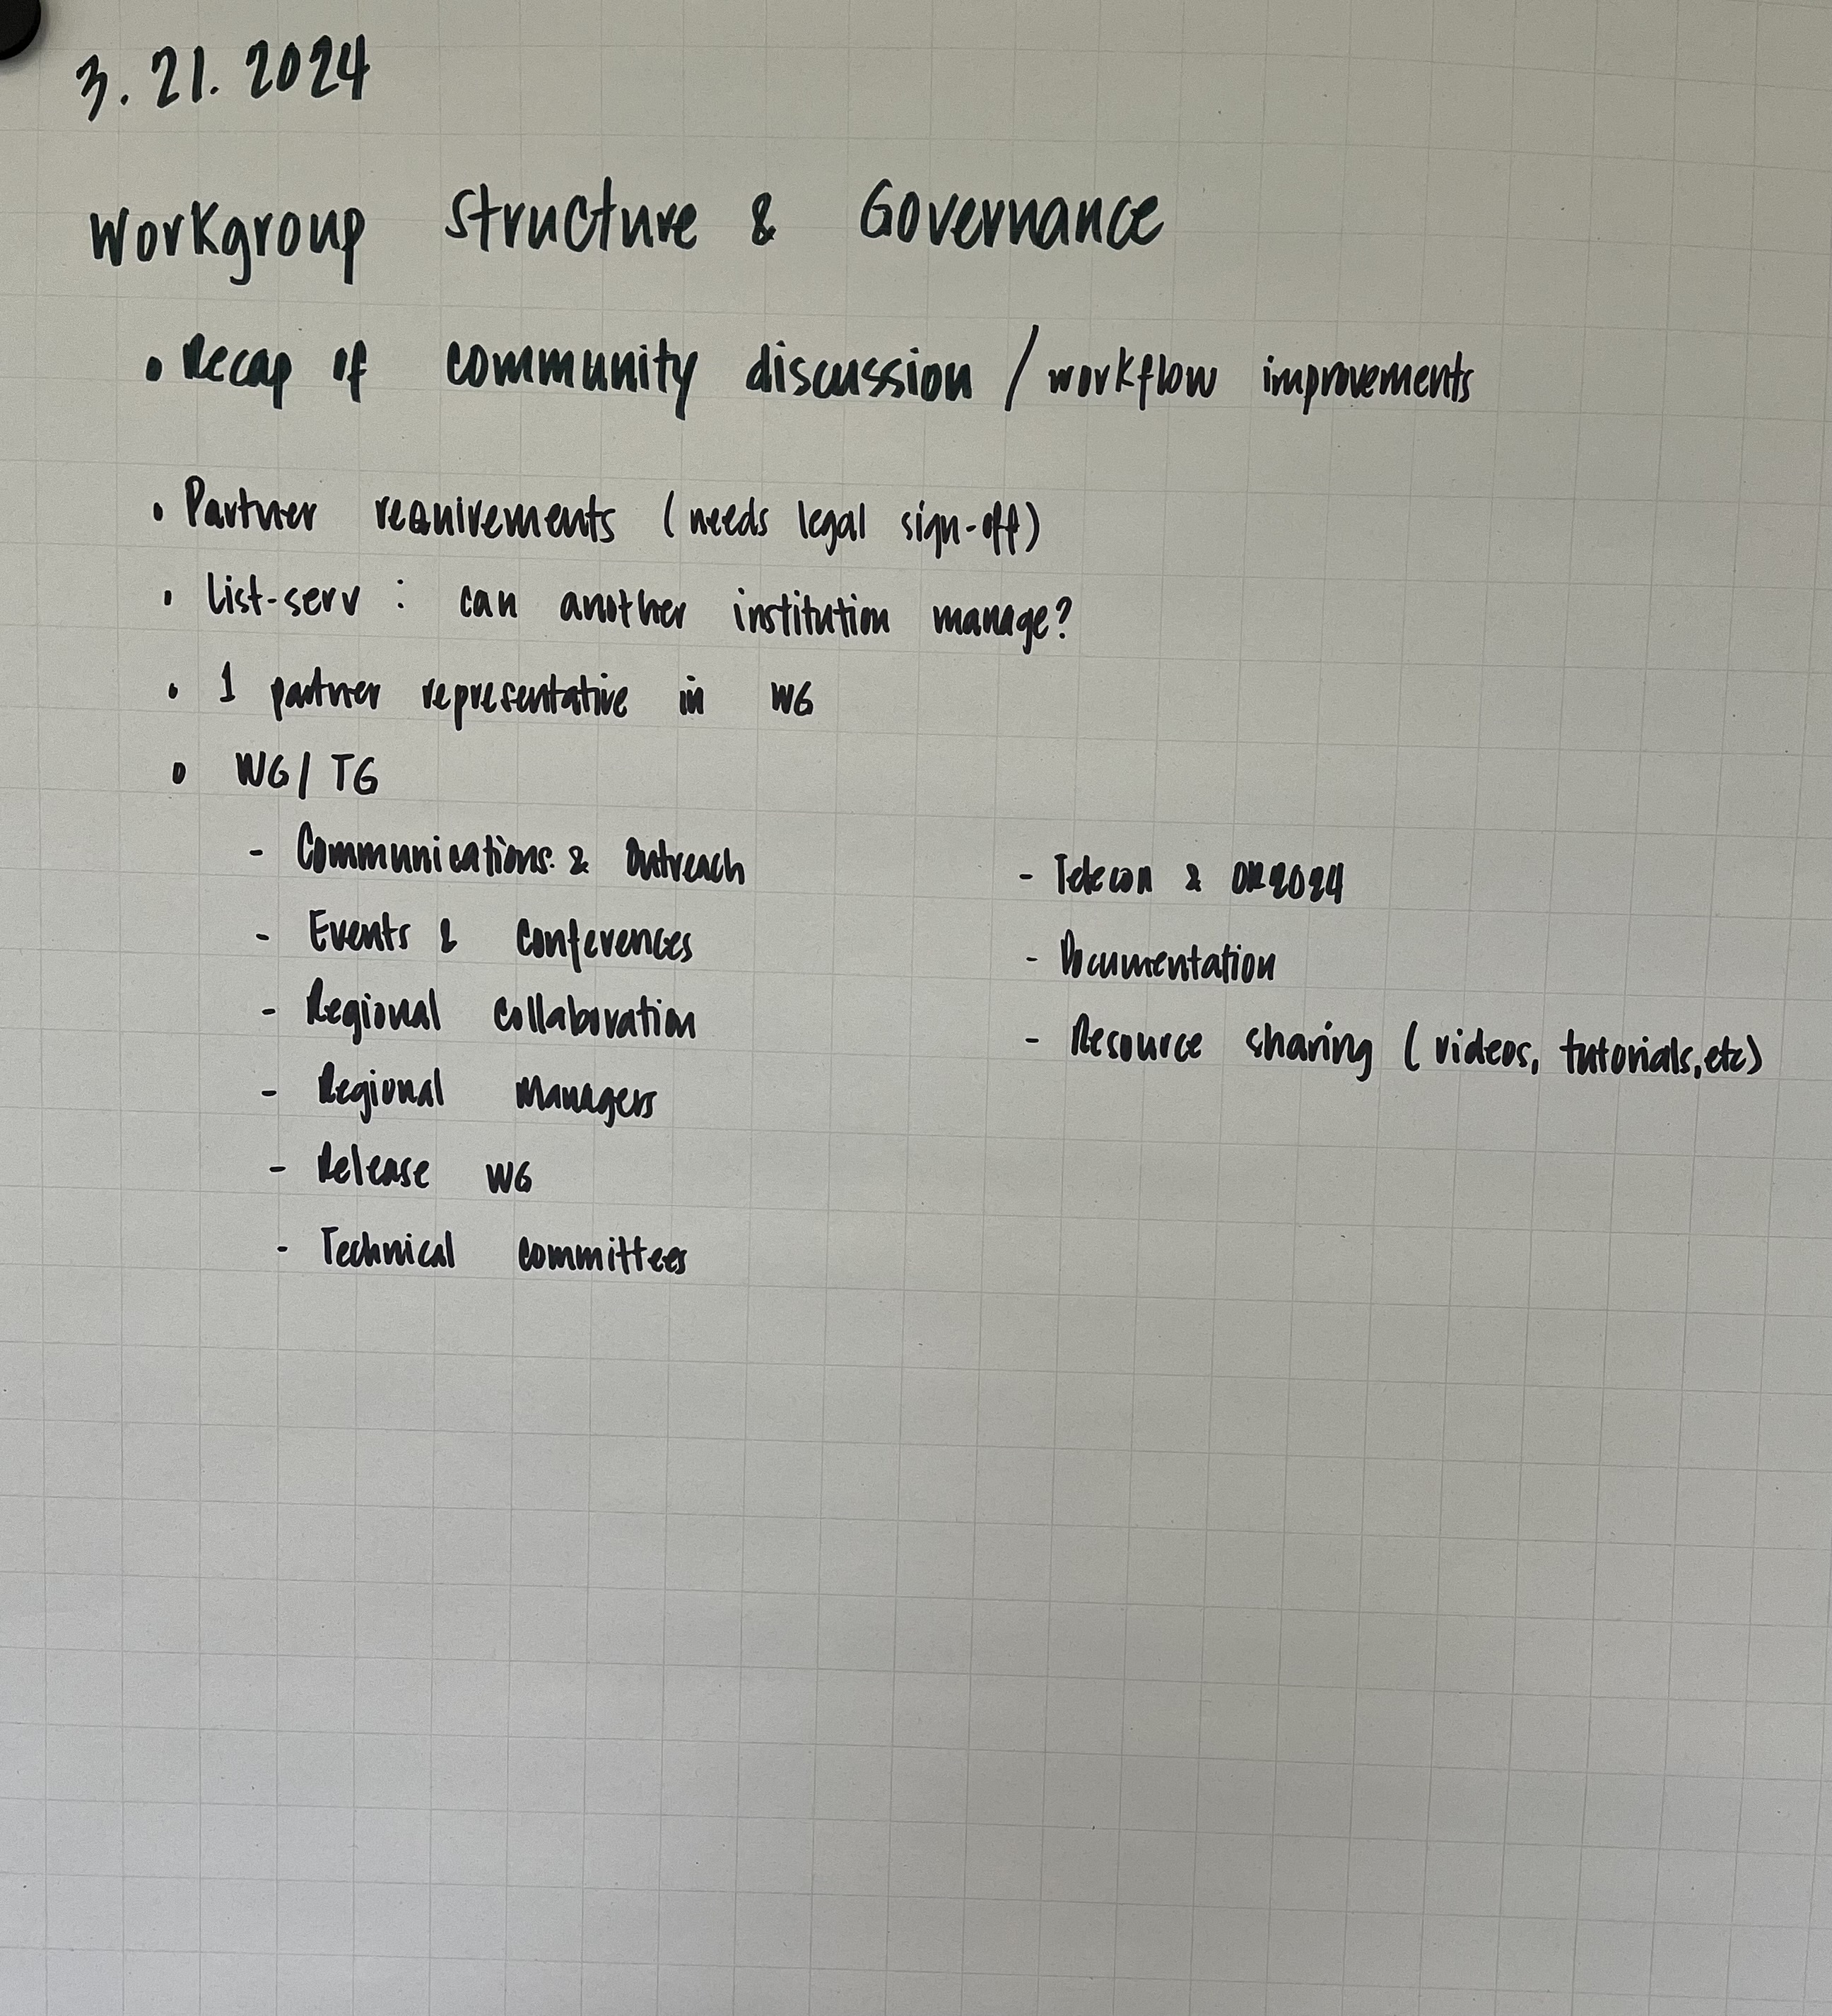 3. 21. 2024
Workgroup Structure & Governance
• Recap of community discussion / workflow improvements
• Partner requirements (needs legal sign-off)
• List-serv : can another institution manage?
• 1 partner representative in WG
• WG / TG
- Communications & Outreach
- Events & Conferences
- Regional Collaboration
- Regional Managers
- Release WG
- Technical Committees
- Telecon & OR2024
- Documentation
- Resource sharing (videos, tutorials, etc)